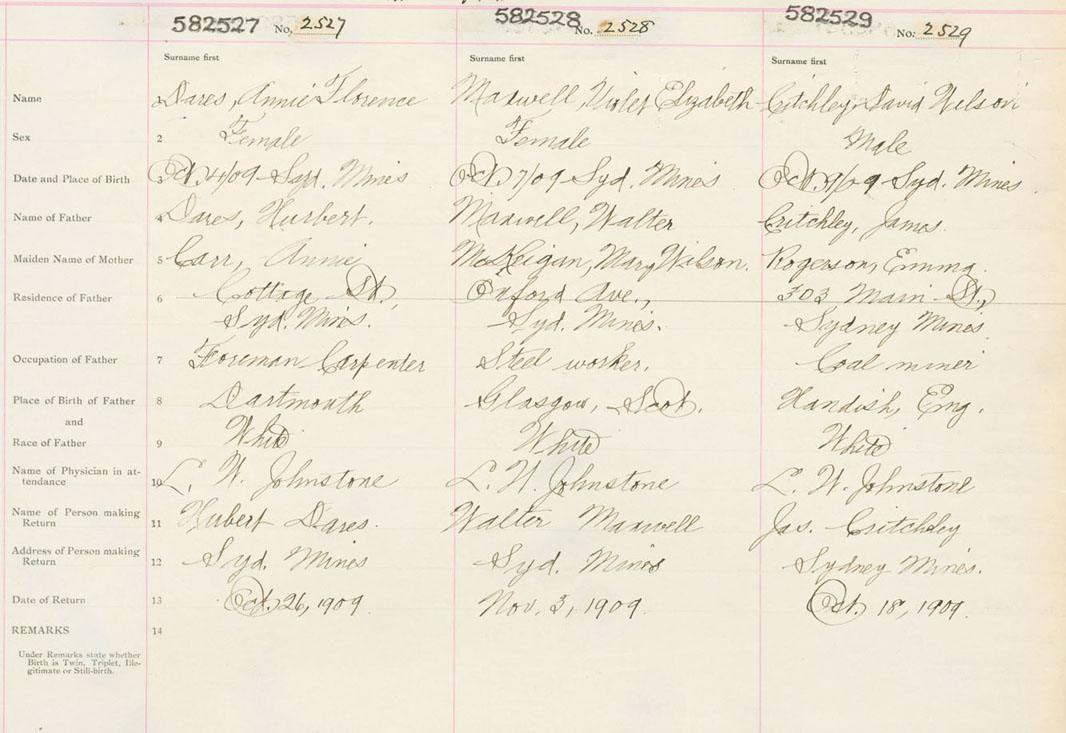 582527 No. 2527
582528 No. 2528
582529 No. 2529
Surname first Surname first Surname first
Name 1 Dares, Annie Florence Maxwell, Violet Elizabeth Critchley, David Wilson
Sex 2 Female Female Male
Date and Place of Birth 3 Oct. 4/09 Syd. Mines Oct. 7/09 Syd. Mines Oct. 9/09 Syd. Mines
Name of Father 4 Dares, Hurbert. Maxwell, Walter Critchley, James.
Maiden Name of Mother 5 Carr, Annie McKeigan, Mary Wilson. Rogerson, Emma.
Residence of Father 6 Cottage St., Oxford Ave., 303 Main St.,
Syd. Mines. Syd. Mines. Sydney Mines
Occupation of Father 7 Foreman Carpenter Steel worker. Coal miner
Place of Birth of Father 8 Dartmouth Glasgow, Scot. Handish, Eng.
and
Race of Father 9 White White White
Name of Physician in at-
tendance 10 L. W. Johnstone L. W. Johnstone L. W. Johnstone
Name of Person making
Return 11 Hubert Dares. Walter Maxwell Jas. Critchley
Address of Person making
Return 12 Syd. Mines Syd. Mines Sydney Mines.
Date of Return 13 Oct. 26, 1909. Nov. 3, 1909. Oct. 18, 1909.
REMARKS 14
Under Remarks state whether
Birth is Twin, Triplet, Ille-
gitimate or Still-birth.